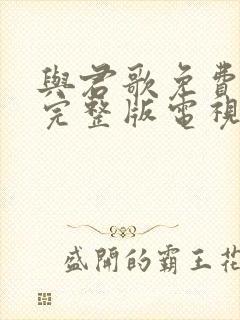 與君歌免費
完整版電視
盛開的霸王花